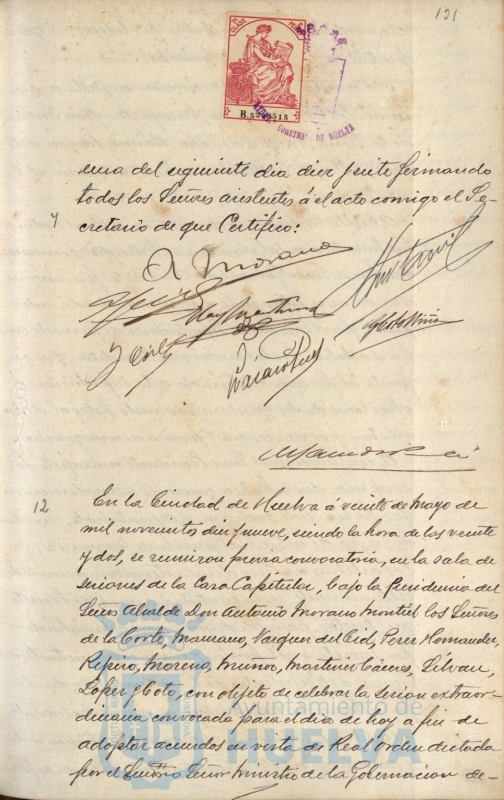 121
CLASE
PESETA
B.5
515
CONSTNAL DE HUELVA
cena del siguiente dia diez y siete firmando
todos los Señores asistentes á el acto comigo el Se-
y
cretario de que Certifico:
A Morano
12
En la Ciudad de Huelva á veinte de Mayo de
mil novecientos diez y nueve, siendo la hora de las veinte
y dos, se reunieron previa convocatoria, en la sala de
sesiones de la Casa Capitular, bajo la Presidencia del
Señor Alcalde Don Antonio Morano Montiel los Señores
de la Corte, Mariano, Vazquez del Cid, Perez Hernandez,
Moreno, Muñoz, Martinez Cáenes,
Lopez y Coto, con objeto de celebrar la sesion extraor-
dinaria convocada para el dia de hoy a fin de
adoptar acuerdos en vista de Real Orden dictada
por el Señor Ministro de la Gobernacion de-
Ayuntamiento de
HUELVA